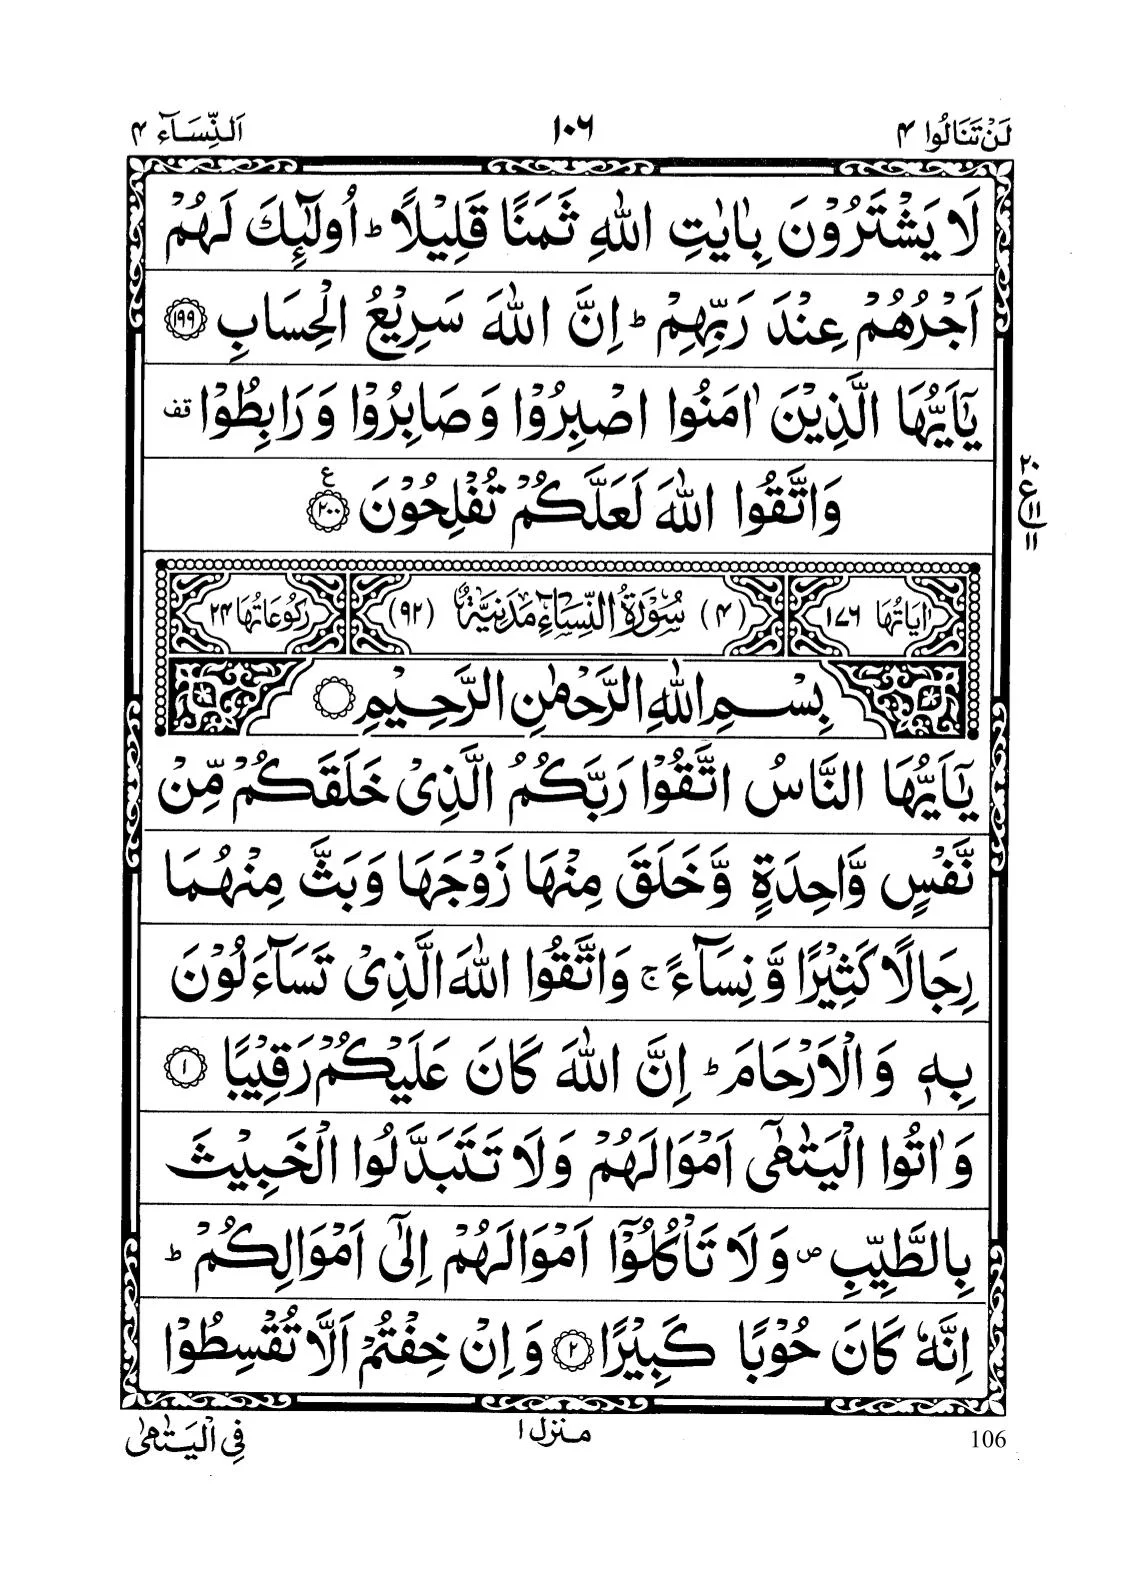 لَنْ تَنَالُوا ۴ ۱۰۶ اَلنِّسَآء ۴
لَا يَشْتَرُوْنَ بِاٰيٰتِ اللّٰهِ ثَمَنًا قَلِيْلًا ؕ اُولٰٓئِكَ لَهُمْ
اَجْرُهُمْ عِنْدَ رَبِّهِمْ ؕ اِنَّ اللّٰهَ سَرِيْعُ الْحِسَابِ ۱۹۹
يٰۤاَيُّهَا الَّذِيْنَ اٰمَنُوا اصْبِرُوْا وَصَابِرُوْا وَرَابِطُوْا قف
وَاتَّقُوا اللّٰهَ لَعَلَّكُمْ تُفْلِحُوْنَ ۲۰۰ ع
۲۰
ع ۱۱
۱۱
اٰيَاتُهَا ۱۷۶ (۴) سُوْرَةُ النِّسَآءِ مَدَنِيَّةٌ (۹۲) رُكُوْعَاتُهَا ۲۴
بِسْمِ اللّٰهِ الرَّحْمٰنِ الرَّحِيْمِ
يٰۤاَيُّهَا النَّاسُ اتَّقُوْا رَبَّكُمُ الَّذِيْ خَلَقَكُمْ مِّنْ
نَّفْسٍ وَّاحِدَةٍ وَّخَلَقَ مِنْهَا زَوْجَهَا وَبَثَّ مِنْهُمَا
رِجَالًا كَثِيْرًا وَّنِسَآءً ۚ وَاتَّقُوا اللّٰهَ الَّذِيْ تَسَآءَلُوْنَ
بِهٖ وَالْاَرْحَامَ ؕ اِنَّ اللّٰهَ كَانَ عَلَيْكُمْ رَقِيْبًا ۱
وَاٰتُوا الْيَتٰمٰۤى اَمْوَالَهُمْ وَلَا تَتَبَدَّلُوا الْخَبِيْثَ
بِالطَّيِّبِ ۪ وَلَا تَاْكُلُوْۤا اَمْوَالَهُمْ اِلٰۤى اَمْوَالِكُمْ ؕ
اِنَّهٗ كَانَ حُوْبًا كَبِيْرًا ۲ وَاِنْ خِفْتُمْ اَلَّا تُقْسِطُوْا
106 منزل ۱ فِي الْيَتٰمٰى